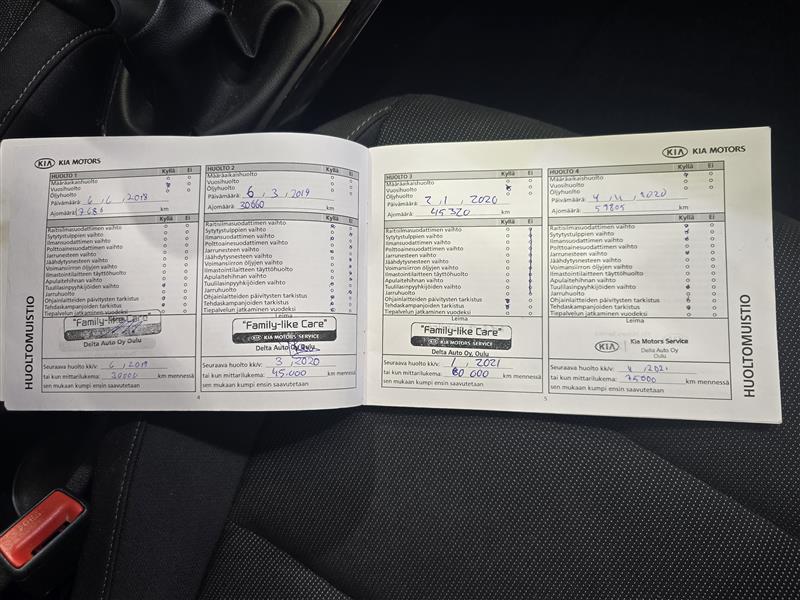 KIA KIA MOTORS
HUOLTO 1 Kyllä Ei
Määräaikaishuolto
Vuosihuolto
Öljyhuolto
Päivämäärä: 6, 6, 2018
Ajomäärä: km
Kyllä Ei
Raitisilmasuodattimen vaihto
Sytytystulppien vaihto
Ilmansuodattimen vaihto
Polttoainesuodattimen vaihto
Jarrunesteen vaihto
Jäähdytysnesteen vaihto
Voimansiirron öljyjen vaihto
Ilmastointilaitteen täyttöhuolto
Apulaitehihnan vaihto
Tuulilasinpyyhkijöiden vaihto
Jarruhuolto
Ohjainlaitteiden päivitysten tarkistus
Tehdaskampanjoiden tarkistus
Tiepalvelun jatkaminen vuodeksi
Leima
"Family-like Care"
Seuraava huolto kk/v: 6, 2019
tai kun mittarilukema: 30000 km mennessä
sen mukaan kumpi ensin saavutetaan
HUOLTO 2 Kyllä Ei
Määräaikaishuolto
Vuosihuolto
Öljyhuolto
Päivämäärä: 6, 3, 2019
Ajomäärä: 30660 km
Kyllä Ei
Raitisilmasuodattimen vaihto
Sytytystulppien vaihto
Ilmansuodattimen vaihto
Polttoainesuodattimen vaihto
Jarrunesteen vaihto
Jäähdytysnesteen vaihto
Voimansiirron öljyjen vaihto
Ilmastointilaitteen täyttöhuolto
Apulaitehihnan vaihto
Tuulilasinpyyhkijöiden vaihto
Jarruhuolto
Ohjainlaitteiden päivitysten tarkistus
Tehdaskampanjoiden tarkistus
Tiepalvelun jatkaminen vuodeksi
Leima
"Family-like Care"
KIA KIA MOTORS SERVICE
Delta Auto Oy Oulu
Seuraava huolto kk/v: 3, 2020
tai kun mittarilukema: 45.000 km mennessä
sen mukaan kumpi ensin saavutetaan
HUOLTOMUISTIO
4
KIA KIA MOTORS
HUOLTO 3 Kyllä Ei
Määräaikaishuolto
Vuosihuolto
Öljyhuolto
Päivämäärä: 2, 1, 2020
Ajomäärä: 45320 km
Kyllä Ei
Raitisilmasuodattimen vaihto
Sytytystulppien vaihto
Ilmansuodattimen vaihto
Polttoainesuodattimen vaihto
Jarrunesteen vaihto
Jäähdytysnesteen vaihto
Voimansiirron öljyjen vaihto
Ilmastointilaitteen täyttöhuolto
Apulaitehihnan vaihto
Tuulilasinpyyhkijöiden vaihto
Jarruhuolto
Ohjainlaitteiden päivitysten tarkistus
Tehdaskampanjoiden tarkistus
Tiepalvelun jatkaminen vuodeksi
Leima
"Family-like Care"
KIA KIA MOTORS SERVICE
Delta Auto Oy, Oulu
Seuraava huolto kk/v: 1, 2021
tai kun mittarilukema: 60 000 km mennessä
sen mukaan kumpi ensin saavutetaan
HUOLTO 4 Kyllä Ei
Määräaikaishuolto
Vuosihuolto
Öljyhuolto
Päivämäärä: 2020
Ajomäärä: 59805 km
Kyllä Ei
Raitisilmasuodattimen vaihto
Sytytystulppien vaihto
Ilmansuodattimen vaihto
Polttoainesuodattimen vaihto
Jarrunesteen vaihto
Jäähdytysnesteen vaihto
Voimansiirron öljyjen vaihto
Ilmastointilaitteen täyttöhuolto
Apulaitehihnan vaihto
Tuulilasinpyyhkijöiden vaihto
Jarruhuolto
Ohjainlaitteiden päivitysten tarkistus
Tehdaskampanjoiden tarkistus
Tiepalvelun jatkaminen vuodeksi
Leima
KIA Kia Motors Service
Oulu
Seuraava huolto kk/v: 2021
tai kun mittarilukema: 75000 km mennessä
sen mukaan kumpi ensin saavutetaan
HUOLTOMUISTIO
5
PRESS